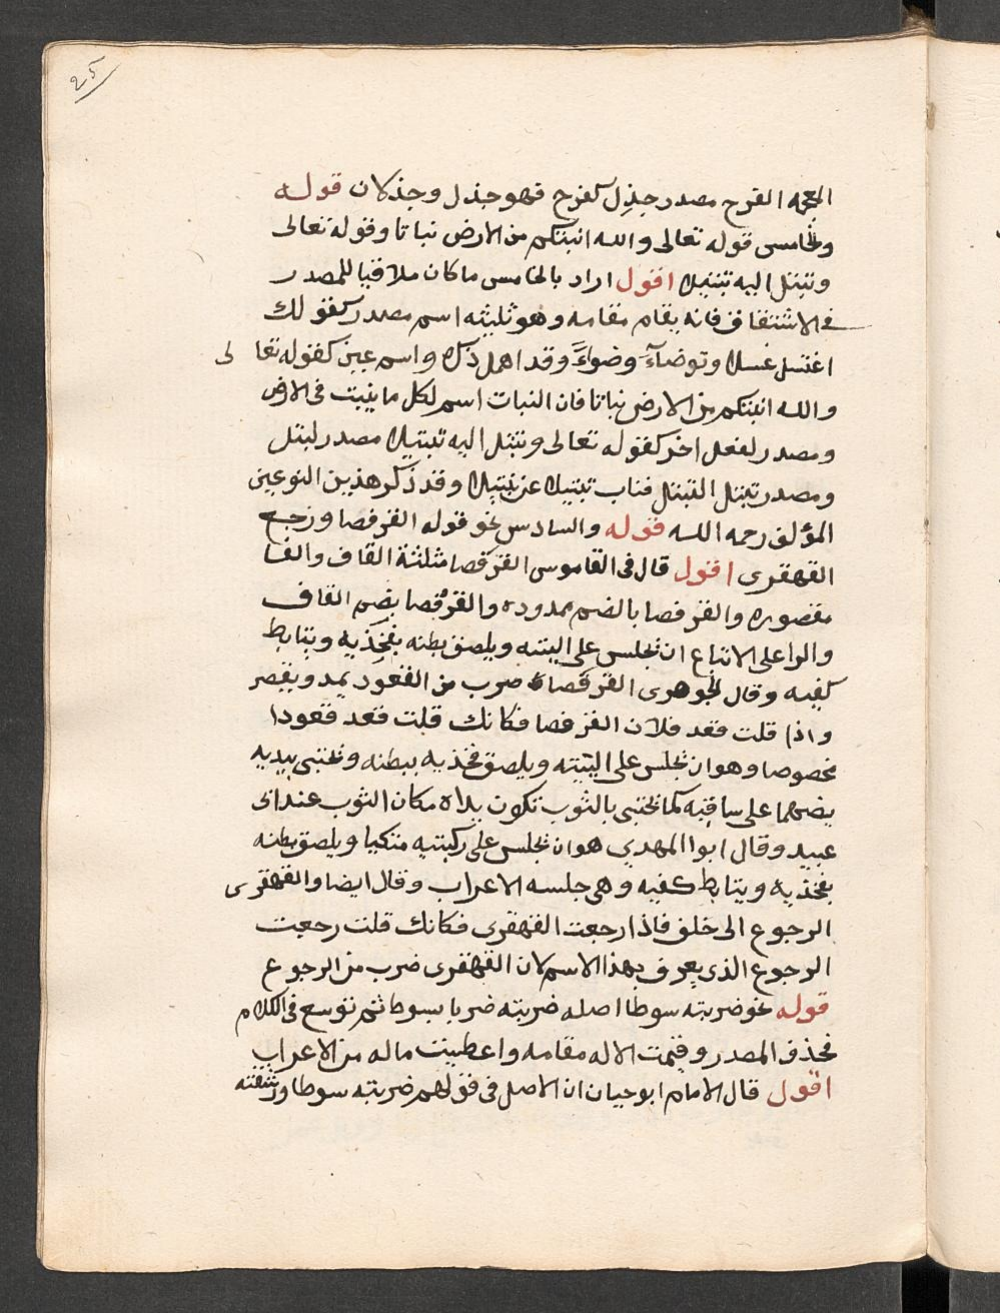 25
المعجمه الفرح مصدر جذِل كفرح فهو جذل وجذلان قوله
والخامس قوله تعالى والله انبتكم من الارض نباتا وقوله تعالى
وتبتل اليه تبتيلا اقول اراد بالخامس ما كان ملاقيا للمصدر
في الاشتقاق فانه يقام مقامه وهو ثلثة اسم مصدر كقولك
اغتسل غسلا وتوضأ وضواً وقد اهمل ذكره واسم عين كقوله تعالى
والله انبتكم من الارض نباتا فان النبات اسم لكل ما ينبت فى الارض
ومصدر لفعل اخر كقوله تعالى وتبتل اليه تبتيلا مصدر لبتل
ومصدر تبتل التبتل فناب تبتيلا عن تبتلا وقد ذكر هذين النوعين
المؤلف رحمه الله قوله والسادس نحو قوله القرفصا ورجع
القهقرى اقول قال فى القاموس القرفصا مثلثة القاف والفا
مقصوره والقرفصا بالضم ممدوده والقرُفصا بضم القاف
والرا على الاتباع ان يجلس على اليتيه ويلصق بطنه بفخذيه ويتابط
كفيه وقال الجوهرى القرفصا ضرب من القعود يمد ويقصر
واذا قلت قعد فلان القرفصا فكانك قلت قعد قعودا
مخصوصا وهو ان يجلس على اليتيه ويلصق فخذيه ببطنه ويحتبى بيديه
يضعهما على ساقيه كما يحتبى بالثوب تكون يداه مكان الثوب عند ابى
عبيد وقال ابوا المهدي هو ان يجلس على ركبتيه متكيا ويلصق بطنه
بفخذيه ويتابط كفيه وهى جلسه الاعراب وقال ايضا والقهقرى
الرجوع الى خلف فاذا رجعت القهقرى فكانك قلت رجعت
الرجوع الذى يعرف بهذا الاسم لان القهقرى ضرب من الرجوع
قوله نحو ضربته سوطا اصله ضربته ضربا بسوط ثم توسع فى الكلام
فحذف المصدر واقيمت الاله مقامه واعطيت ماله من الاعراب
اقول قال الامام ابو حيان ان الاصل فى قولهم ضربته سوطا ورشقته